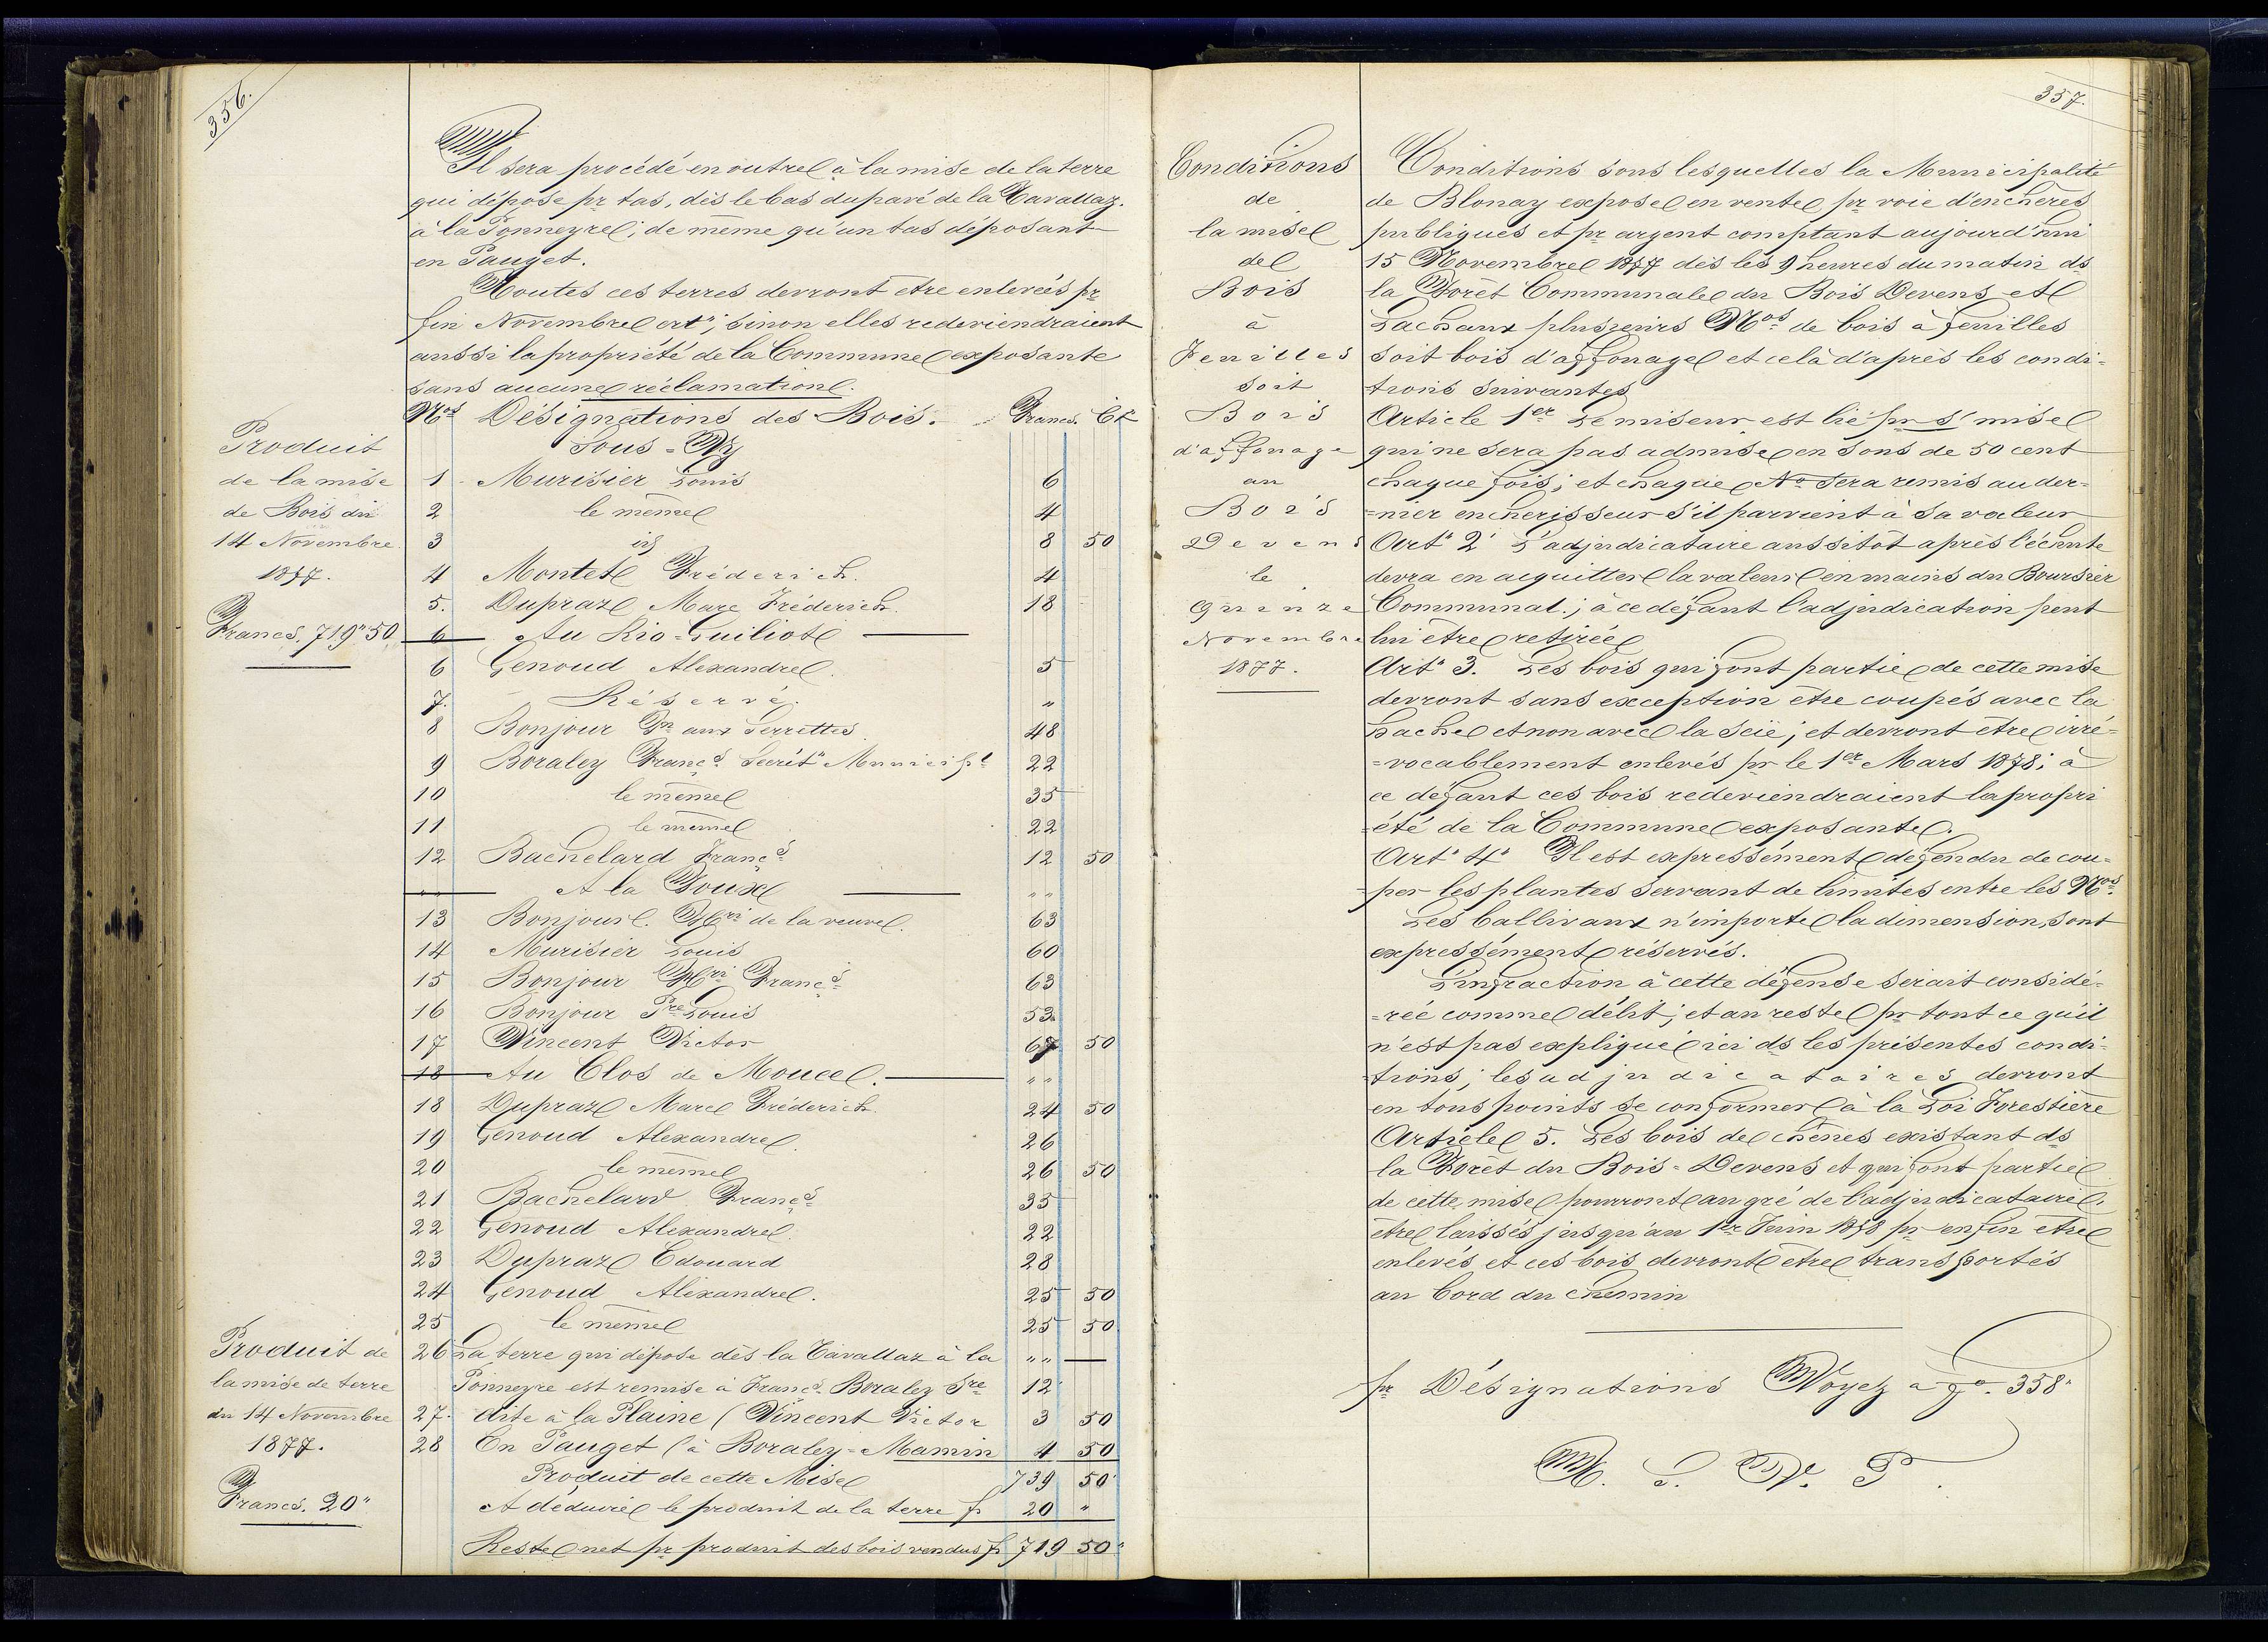 356.
Il sera procédé en outre à la mise de la terre
qui dépose pr tas, dès le bas du pavé de la Tavallaz.
à la Ponneyre; de même qu'un tas déposant
en Pauget.
Toutes ces terres devront être enlevées pr
fin Novembre ct", sinon elles redeviendraient
aussi la propriété de la Commune exposante
sans aucune réclamation.
Produit
de la mise
de Bois du
14 Novembre
1877.
Francs. 719" 50
Nos Désignations des Bois. Francs. Ct
Sous-
1 Murisier Louis 6
2 le même 4
3 id 8 50
4 Montet Fréderich. 4
5. Dupraz Marc Fréderich. 18
6 Au Rio-Guiliot
6 Genoud Alexandre. 5
7. Réservé. "
8 Bonjour Fn aux Serrettes 48
9 Boraley Francs Secrét" Municipl 22
10 le même 35
11 le même 22
12 Bachelard Francs 12 50
" " A la Joux " "
13 Bonjour. Hri de la veuve. 63
14 Murisier Louis 60
15 Bonjour Hri Francs 63
16 Bonjour Pre Louis 53
17 Vincent Victor 67 50
18 Au Clos de Moucel. " "
18 Dupraz Marc Fréderich 24 50
19 Genoud Alexandre. 26
20 le même 26 50
21 Bachelard Francs 35
22 Genoud Alexandre. 22
23 Dupraz Edouard 28
24 Genoud Alexandre. 25 50
25 le même 25 50
Produit de
la mise de terre
du 14 Novembre
1877.
Francs. 20"
26 La terre qui dépose dès la Tavallaz à la " "
Ponneyre est remise à Francs Boraley Sre 12
27. dite à la Plaine (Vincent Victor 3 50
28 En Pauget (à Boraley-Mamin 4 50
Produit de cette Mise 739 50
A déduire le produit de la terre f 20 "
Reste net pr produit des bois vendus f 719 50"
357.
Conditions
de
la mise
de
Bois
à
Feuilles
soit
Bois
d'affouage
au
Bois
Devens
le
quinze
Novembre
1877.
Conditions sous lesquelles la Municipalité
de Blonay expose en vente pr voie d'enchères
publiques et pr argent comptant aujourd'hui
15 Novembre 1877 dès les 9 heures du matin ds
la Forêt Communale du Bois Devens et
Lachaux plusieurs Nos de bois à feuilles
soit bois d'affouage et celà d'après les condi-
tions suivantes
Article 1er Le miseur est lié pr s' mise
qui ne sera pas admise en sous de 50 cent
chaque fois; et chaque No sera remis au der-
=nier enchérisseur s'il parvient à sa valeur
Art" 2' L'adjudicataire aussitôt après l'échute
devra en acquitter la valeur en mains du Boursier
Communal.; à ce défaut l'adjudication peut
lui être retirée
Art" 3. Les bois qui font partie de cette mise
devront sans exception être coupés avec la
hache et non avec la scie; et devront être irré-
=vocablement enlevés pr le 1er Mars 1878; à
ce défaut ces bois redeviendraient la propri
été de la Commune exposante.
Art" 4" Il est expressément défendu de cou-
per les plantes servant de limites entre les Nos.
Les ballivaux n'importe la dimension, sont
expressément réservés.
L'infraction à cette défense serait considé-
=rée comme délit; et au reste pr tout ce qu'il
n'est pas expliqué ici ds les présentes condi-
tions; les adjudicataires devront
en tous points se conformer à la Loi Forestière
Article 5. Les bois de chênes existant ds
la Forêt du Bois-Devens et qui font partie
de cette mise pourront au gré de l'adjudicataire,
être laissés jusqu'au 1er Juin 1878 pr enfin être
enlevés et ces bois devront être transportés
au bord du chemin
pr Désignations Voyez à fo. 358"
T. S. V. P.